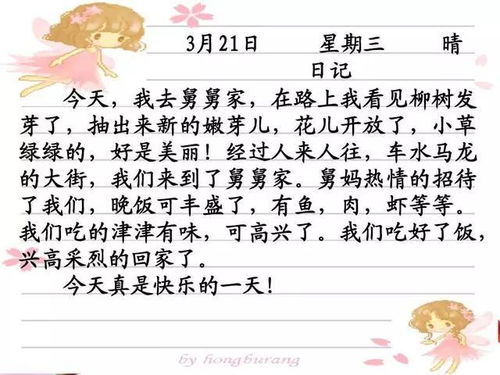 3月21日 星期三 晴
日记
今天，我去舅舅家，在路上我看见柳树发
芽了，抽出来新的嫩芽儿，花儿开放了，小草
绿绿的，好是美丽！经过人来人往，车水马龙
的大街，我们来到了舅舅家。舅妈热情的招待
了我们，晚饭可丰盛了，有鱼，肉，虾等等。
我们吃的津津有味，可高兴了。我们吃好了饭，
兴高采烈的回家了。
今天真是快乐的一天！
by hongburang